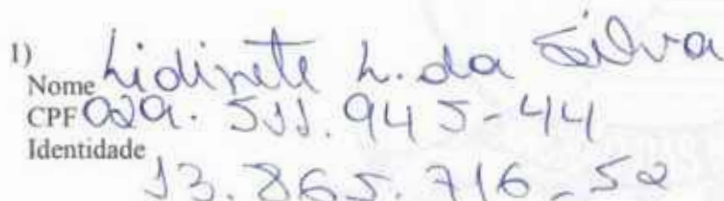 1)
Nome Lidinete L. da Silva
CPF 029.511.945-44
Identidade
13.865.716-52